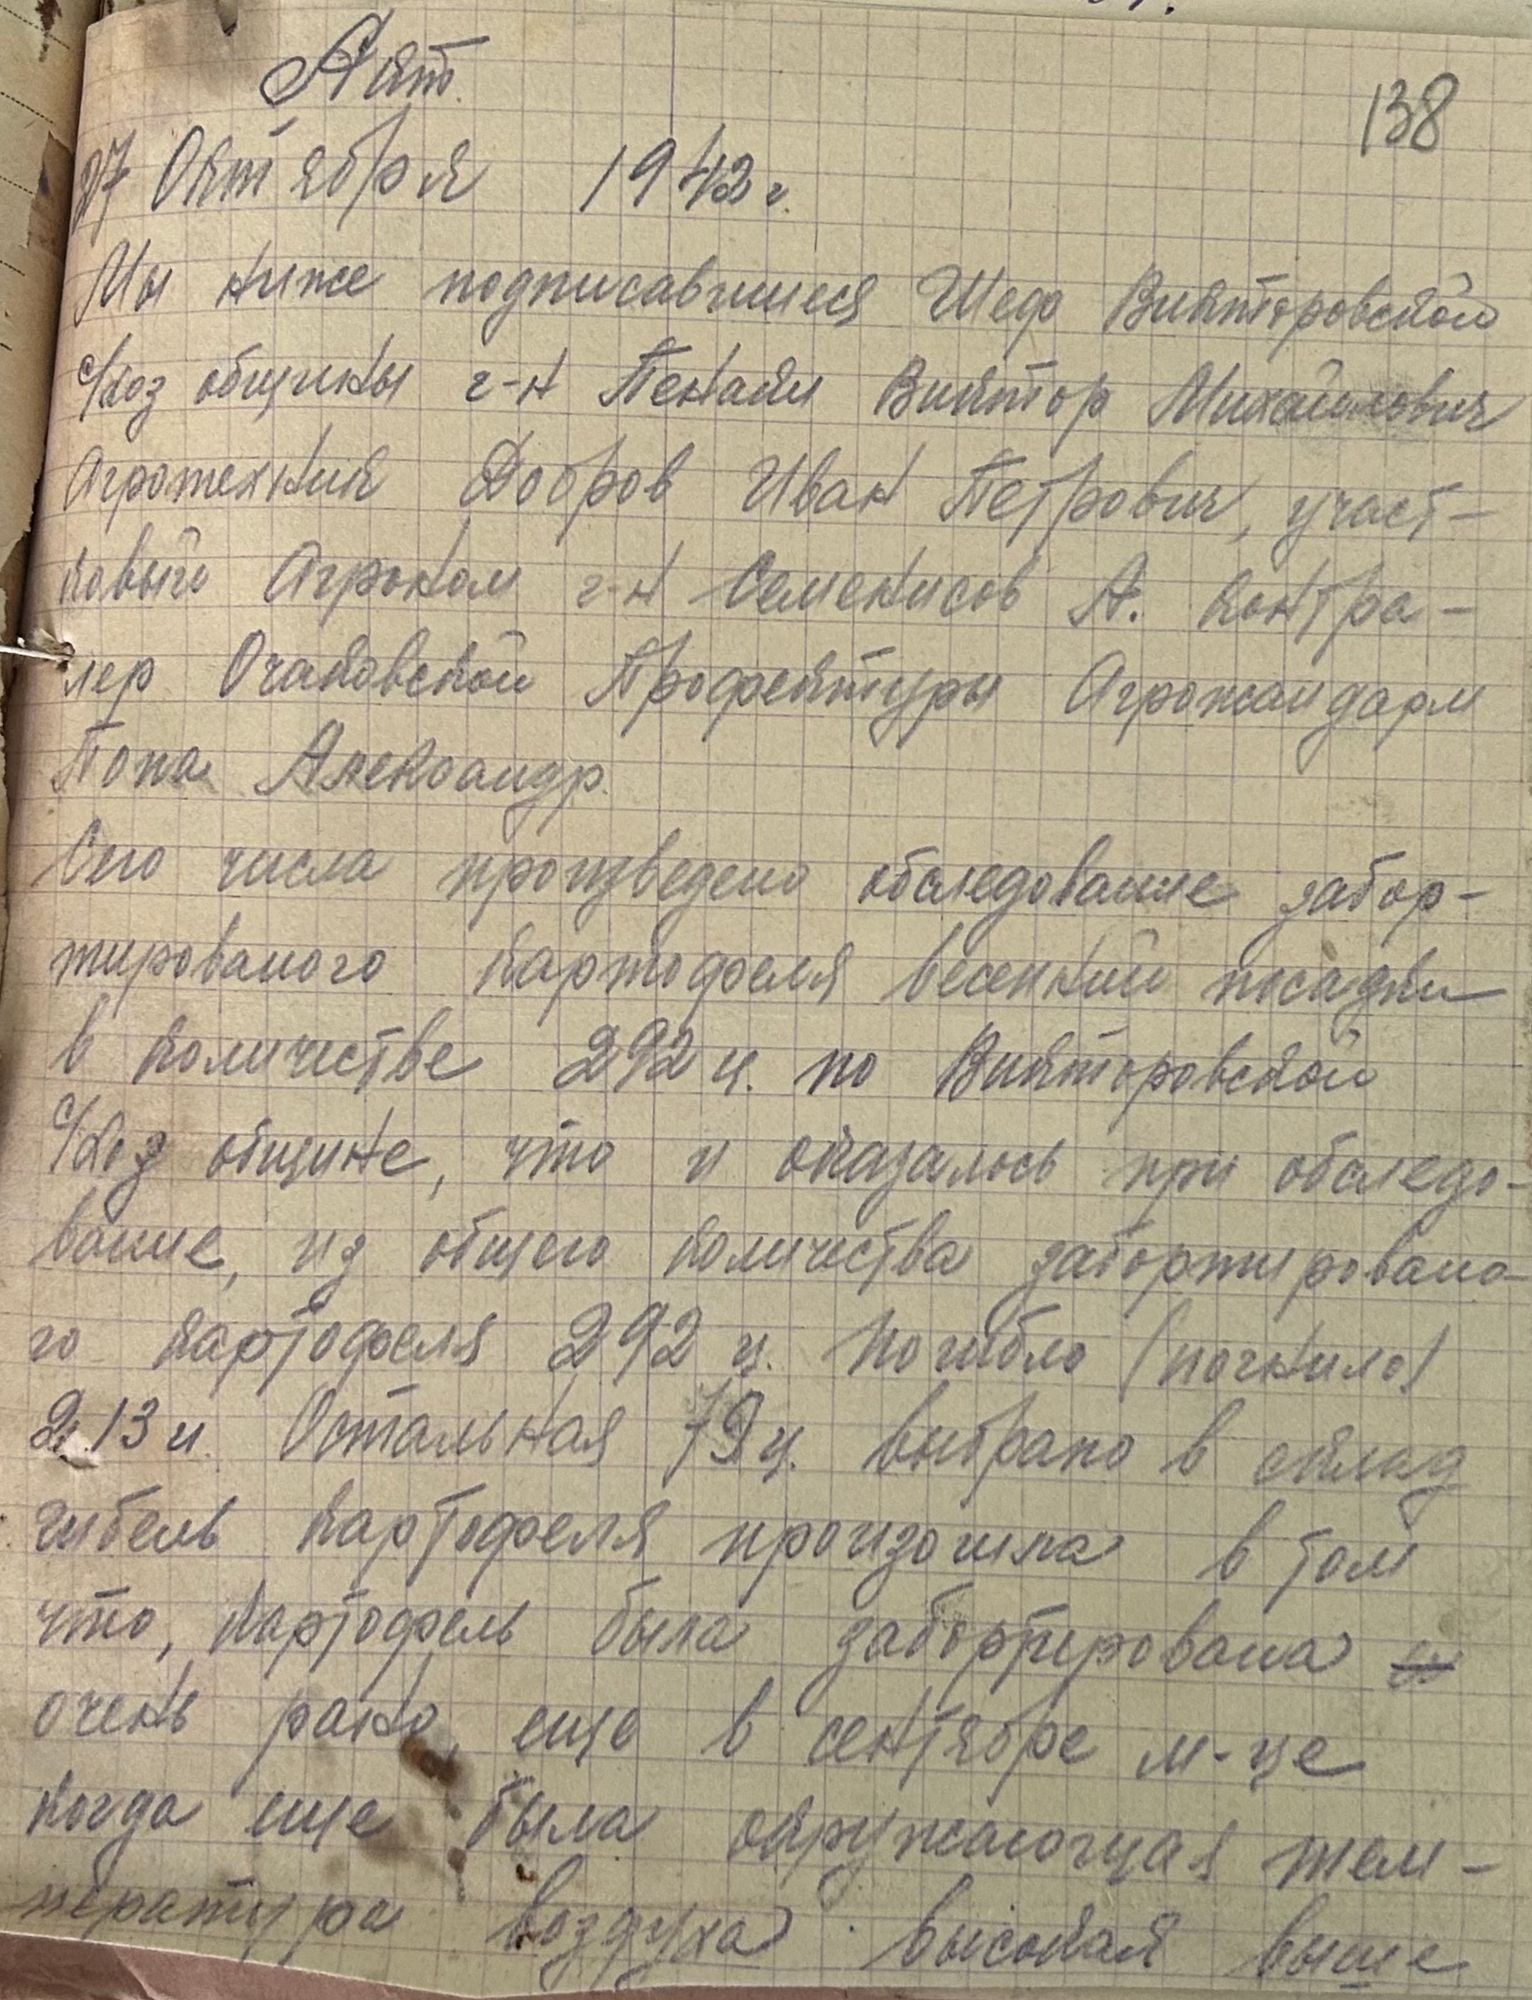 Акт.
138
27 Октября 1942 г.
Мы ниже подписавшиеся Шеф Викторовской
с/хоз общины г-н Пекаял Виктор Михайлович
Агротехник Добров Иван Петрович, участ-
ковый Агроном г-н Семенисов А. контра-
лер Очаковской Профектуры Агрожандарм
Попа Александр.
Сего числа произведено обследование забор-
тированого картофеля весенний посадки
в количестве 292 ц. по Викторовской
с/хоз общине, что и оказалось при обследо-
вание, из общего количества забортировано-
го картофеля 292 ц. погибло (погнило)
213 ц. Остальная 79 ц. выбрано в склад
гибель картофеля произошла в том
что, картофель была забортирована
очень рано, еще в сентябре м-це
когда еще была окружающая тем-
пература воздуха высокая выше